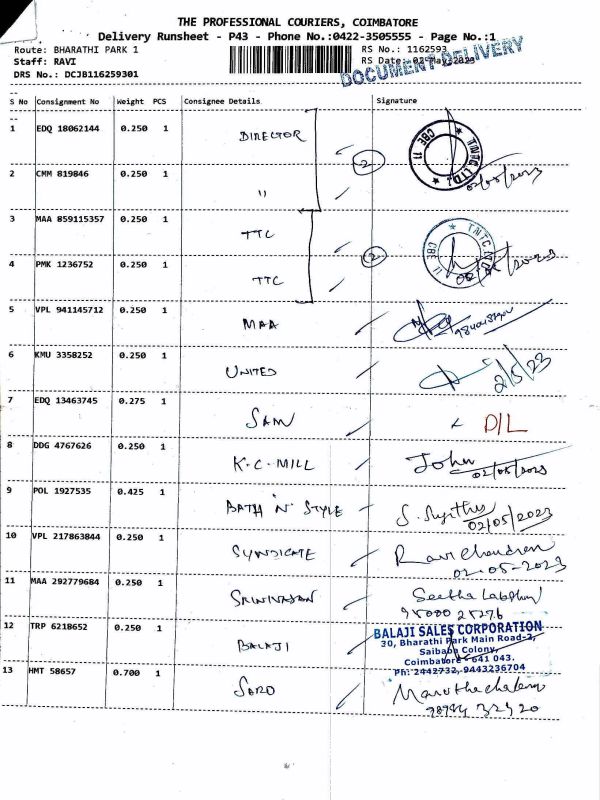 THE PROFESSIONAL COURIERS, COIMBATORE
Delivery Runsheet - P43 - Phone No.:0422-3505555 - Page No.:1
Route: BHARATHI PARK 1 RS No.: 1162593
Staff: RAVI RS Date: 02-May-2023
DRS No.: DCJB116259301
DOCUMENT DELIVERY
S No Consignment No Weight PCS Consignee Details Signature
1 EDQ 18062144 0.250 1 DIRECTOR
2 TNTC LTD. CBE 11
2 CMM 819846 0.250 1 " 02/05/2023
3 MAA 859115357 0.250 1 TTC
2 TNTC LTD CBE 11
4 PMK 1236752 0.250 1 TTC 02/05/2023
5 VPL 941145712 0.250 1 MAA
6 KMU 3358252 0.250 1 UNITED 2/5/23
7 EDQ 13463745 0.275 1 SAM D/L
8 DDG 4767626 0.250 1 K.C.MILL John 02/05/2023
9 POL 1927535 0.425 1 BATH N STYLE 02/05/2023
10 VPL 217863844 0.250 1 SYNDICATE Ravichandran
02-05-2023
11 MAA 292779684 0.250 1 SRINIVASAN
12 TRP 6218652 0.250 1 BALAJI
BALAJI SALES CORPORATION
30, Bharathi Park Main Road-2,
Saibaba Colony,
Coimbatore - 641 043.
Ph: 2442732, 9443236704
13 HMT 58657 0.700 1